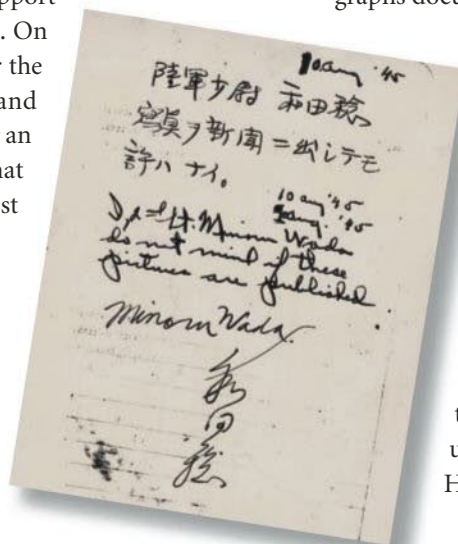 pport
. On
r the
and
an
hat
st
graphs docu
10 aug '45
陸軍少尉 和田稔
寫眞ヲ新聞ニ出シテモ
許ハ ナイ。
10 aug '45
aug. '45
I, 2nd Lt. Minoru Wada
do not mind if these
pictures are published.
Minoru Wada.
和
田
稔
t
u
H